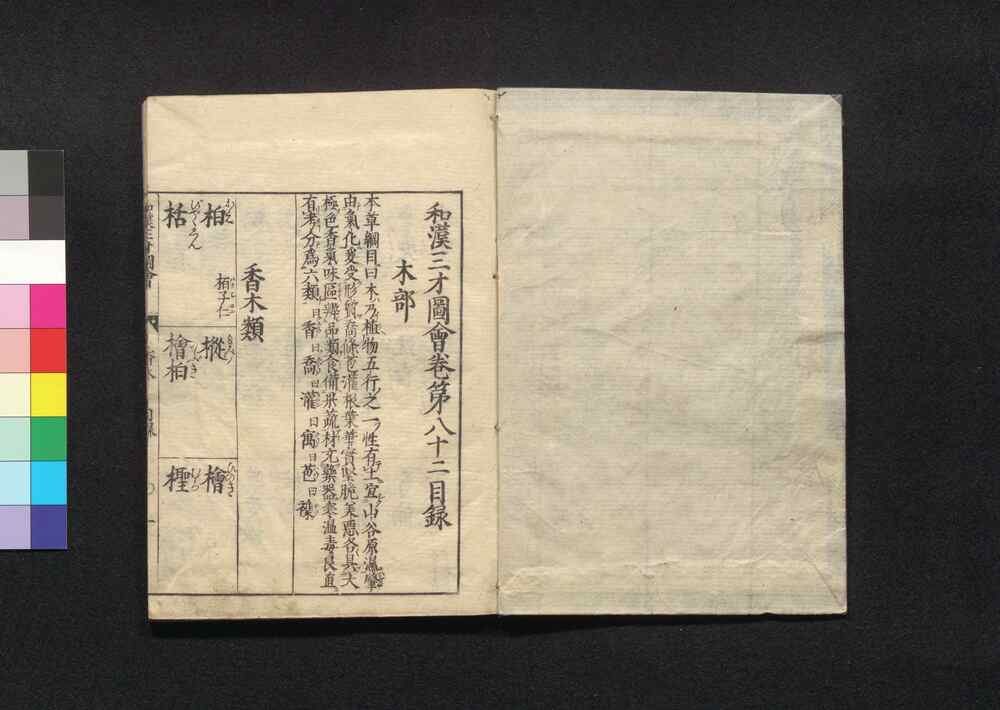 和漢三才圖會卷第八十二目録
木部
本草綱目曰木乃植物五行之一性有土宜山谷原隰肇
由氣化爰受形質喬條苞灌根葉華實堅脆美惡各具太
極色香氣味區辨品類食備果蔬材充藥器寒温毒良直
有考分爲六類曰香曰喬曰灌曰寓曰苞曰襍
香木類
柏
栢子仁
樅
檜
ひのき
栝
檜柏
檉
和漢三才圖會
香木
目録
一